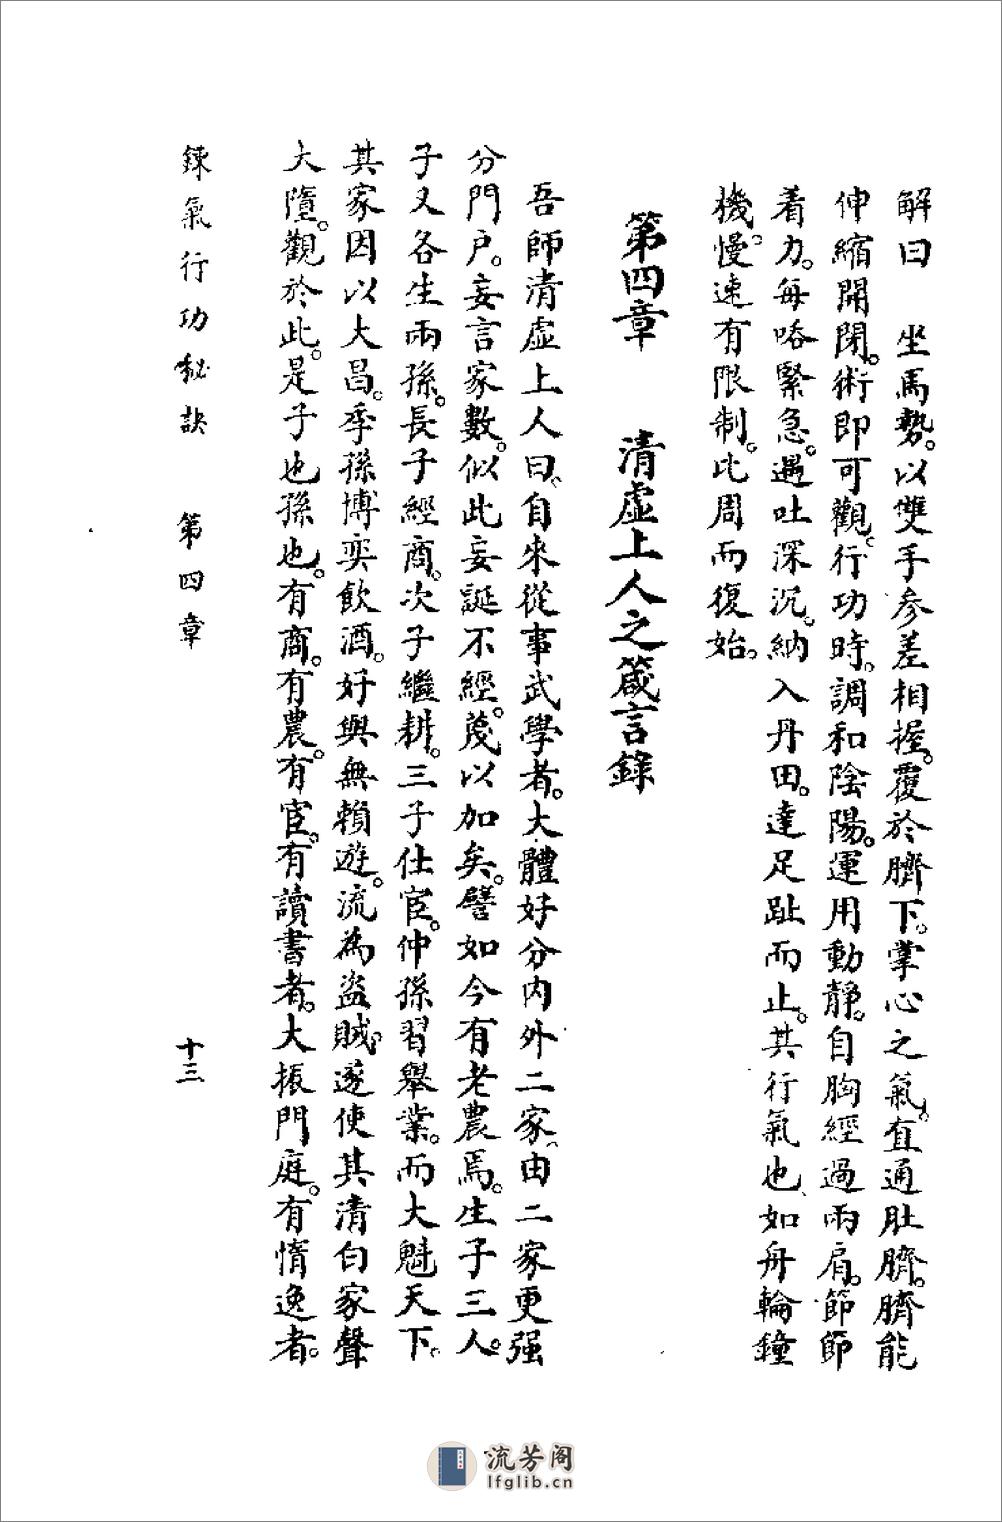 解曰　坐馬勢。以雙手參差相握。覆於臍下。掌心之氣。直通肚臍。臍能
伸縮開閉。術即可觀。行功時。調和陰陽。運用動靜。自胸經過兩肩。節節
着力。每咯緊急。遇吐深沉。納入丹田。達足趾而止。其行氣也、如舟輪鐘
機。慢速有限制。此周而復始。
第四章　清虛上人之箴言錄
吾師清虛上人曰。自來從事武學者。大體好分内外二家。由二家更强
分門戶。妄言家數。似此妄誕不經。蔑以加矣。譬如今有老農焉。生子三人。
子又各生兩孫。長子經商。次子繼耕。三子仕宦。仲孫習舉業。而大魁天下。
其家因以大昌。季孫博奕飲酒。好與無賴遊。流為盜賊。遂使其清白家聲
大墮。觀於此。是子也孫也。有商。有農。有宦。有讀書者。大振門庭。有惰逸者。
鍊氣行功秘訣　第四章　十三
流芳阁
lfglib.cn